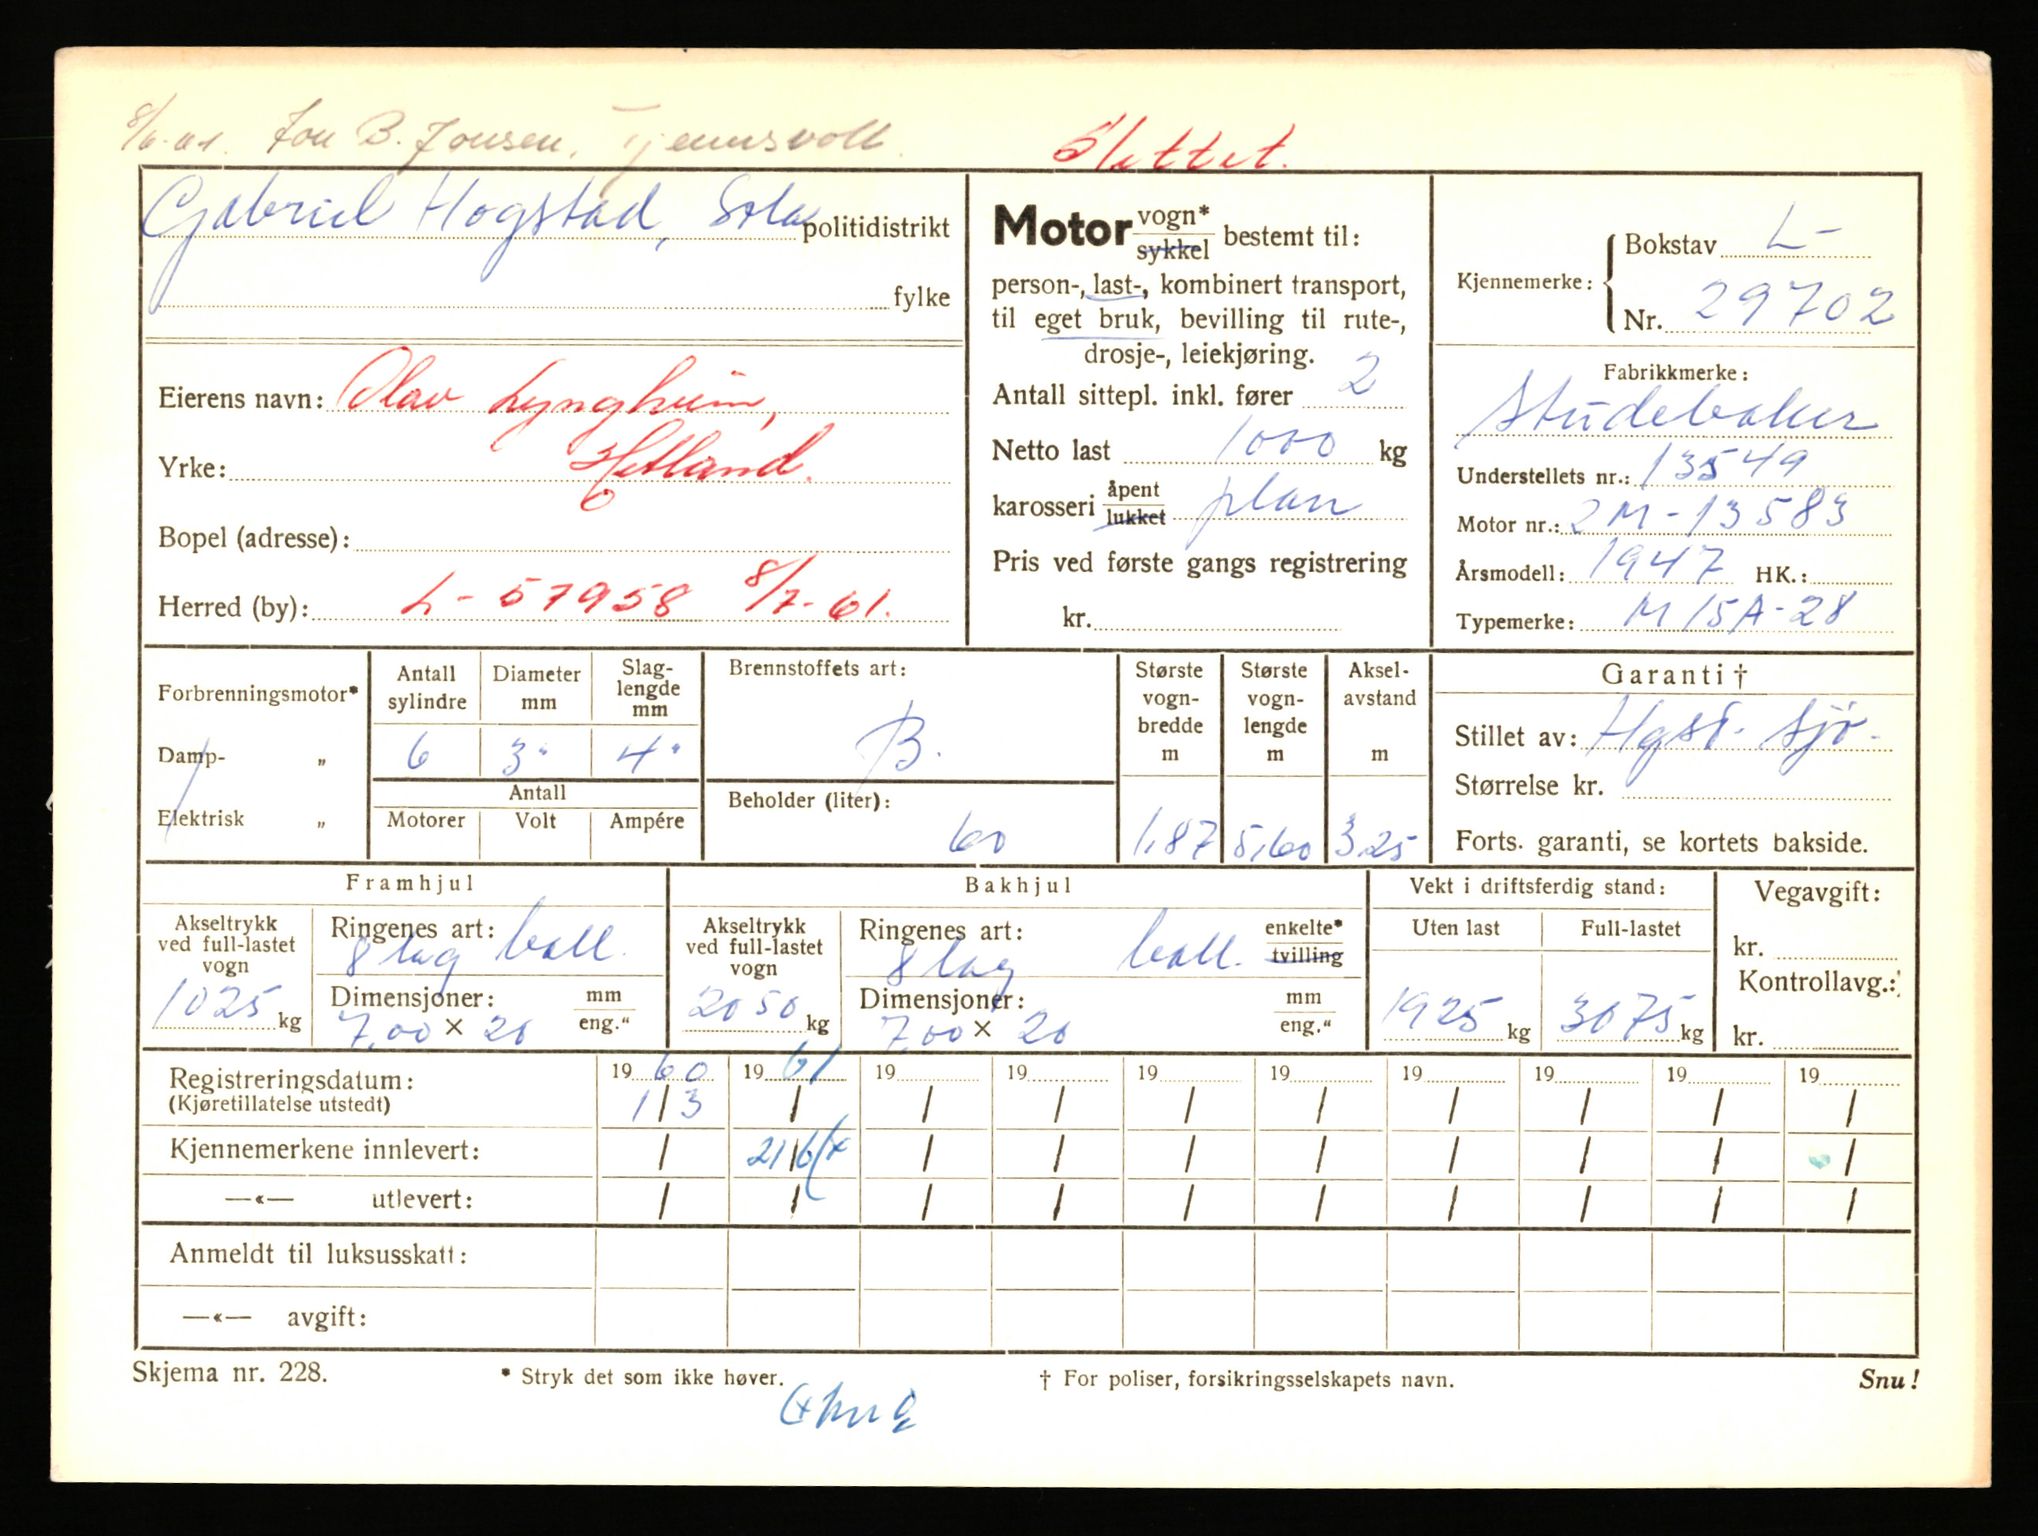 8/6-61. Jon B. Jonsen, Tjensvoll.
Slettet.
Gabriel Hogstad, Sola politidistrikt
fylke
Eierens navn: Olav Lyngheim,
Yrke: Hetland.
Bopel (adresse):
Herred (by): L-57958 8/7-61.
Motor vogn* sykkel bestemt til:
person-, last-, kombinert transport,
til eget bruk, bevilling til rute-,
drosje-, leiekjøring.
Antall sittepl. inkl. fører 2
Netto last 1000 kg
karosseri åpent lukket plan
Pris ved første gangs registrering
kr.
Kjennemerke: Bokstav L-
Nr. 29702
Fabrikkmerke:
Studebaker
Understellets nr.: 13549
Motor nr.: 2M-13583
Årsmodell: 1947 HK.:
Typemerke: M15A-28
Forbrenningsmotor*
Damp- „
Elektrisk „
Antall sylindre 6
Diameter mm 3"
Slaglengde mm 4"
Antall
Motorer Volt Ampére
Brennstoffets art:
B.
Beholder (liter):
60
Største vogn-bredde m 1,87
Største vogn-lengde m 5,60
Aksel-avstand m 3,25
Garanti †
Stillet av: Hgsf. Sjø-
Størrelse kr.
Forts. garanti, se kortets bakside.
Framhjul
Akseltrykk ved full-lastet vogn
1025 kg
Ringenes art:
8 lag ball.
Dimensjoner: mm eng."
7,00 × 20
Bakhjul
Akseltrykk ved full-lastet vogn
2050 kg
Ringenes art: enkelte* tvilling
8 lag ball.
Dimensjoner: mm eng."
7,00 × 20
Vekt i driftsferdig stand:
Uten last Full-lastet
1925 kg 3075 kg
Vegavgift:
kr.
Kontrollavg.:
kr.
Registreringsdatum: 1960 1961 19 19 19 19 19 19 19 19
(Kjøretillatelse utstedt) 1/3 / / / / / / / / /
Kjennemerkene innlevert: / 21/6 (x / / / / / / / /
—«— utlevert: / / / / / / / / / /
Anmeldt til luksusskatt:
—«— avgift:
Skjema nr. 228.
* Stryk det som ikke høver.
† For poliser, forsikringsselskapets navn.
Snu!